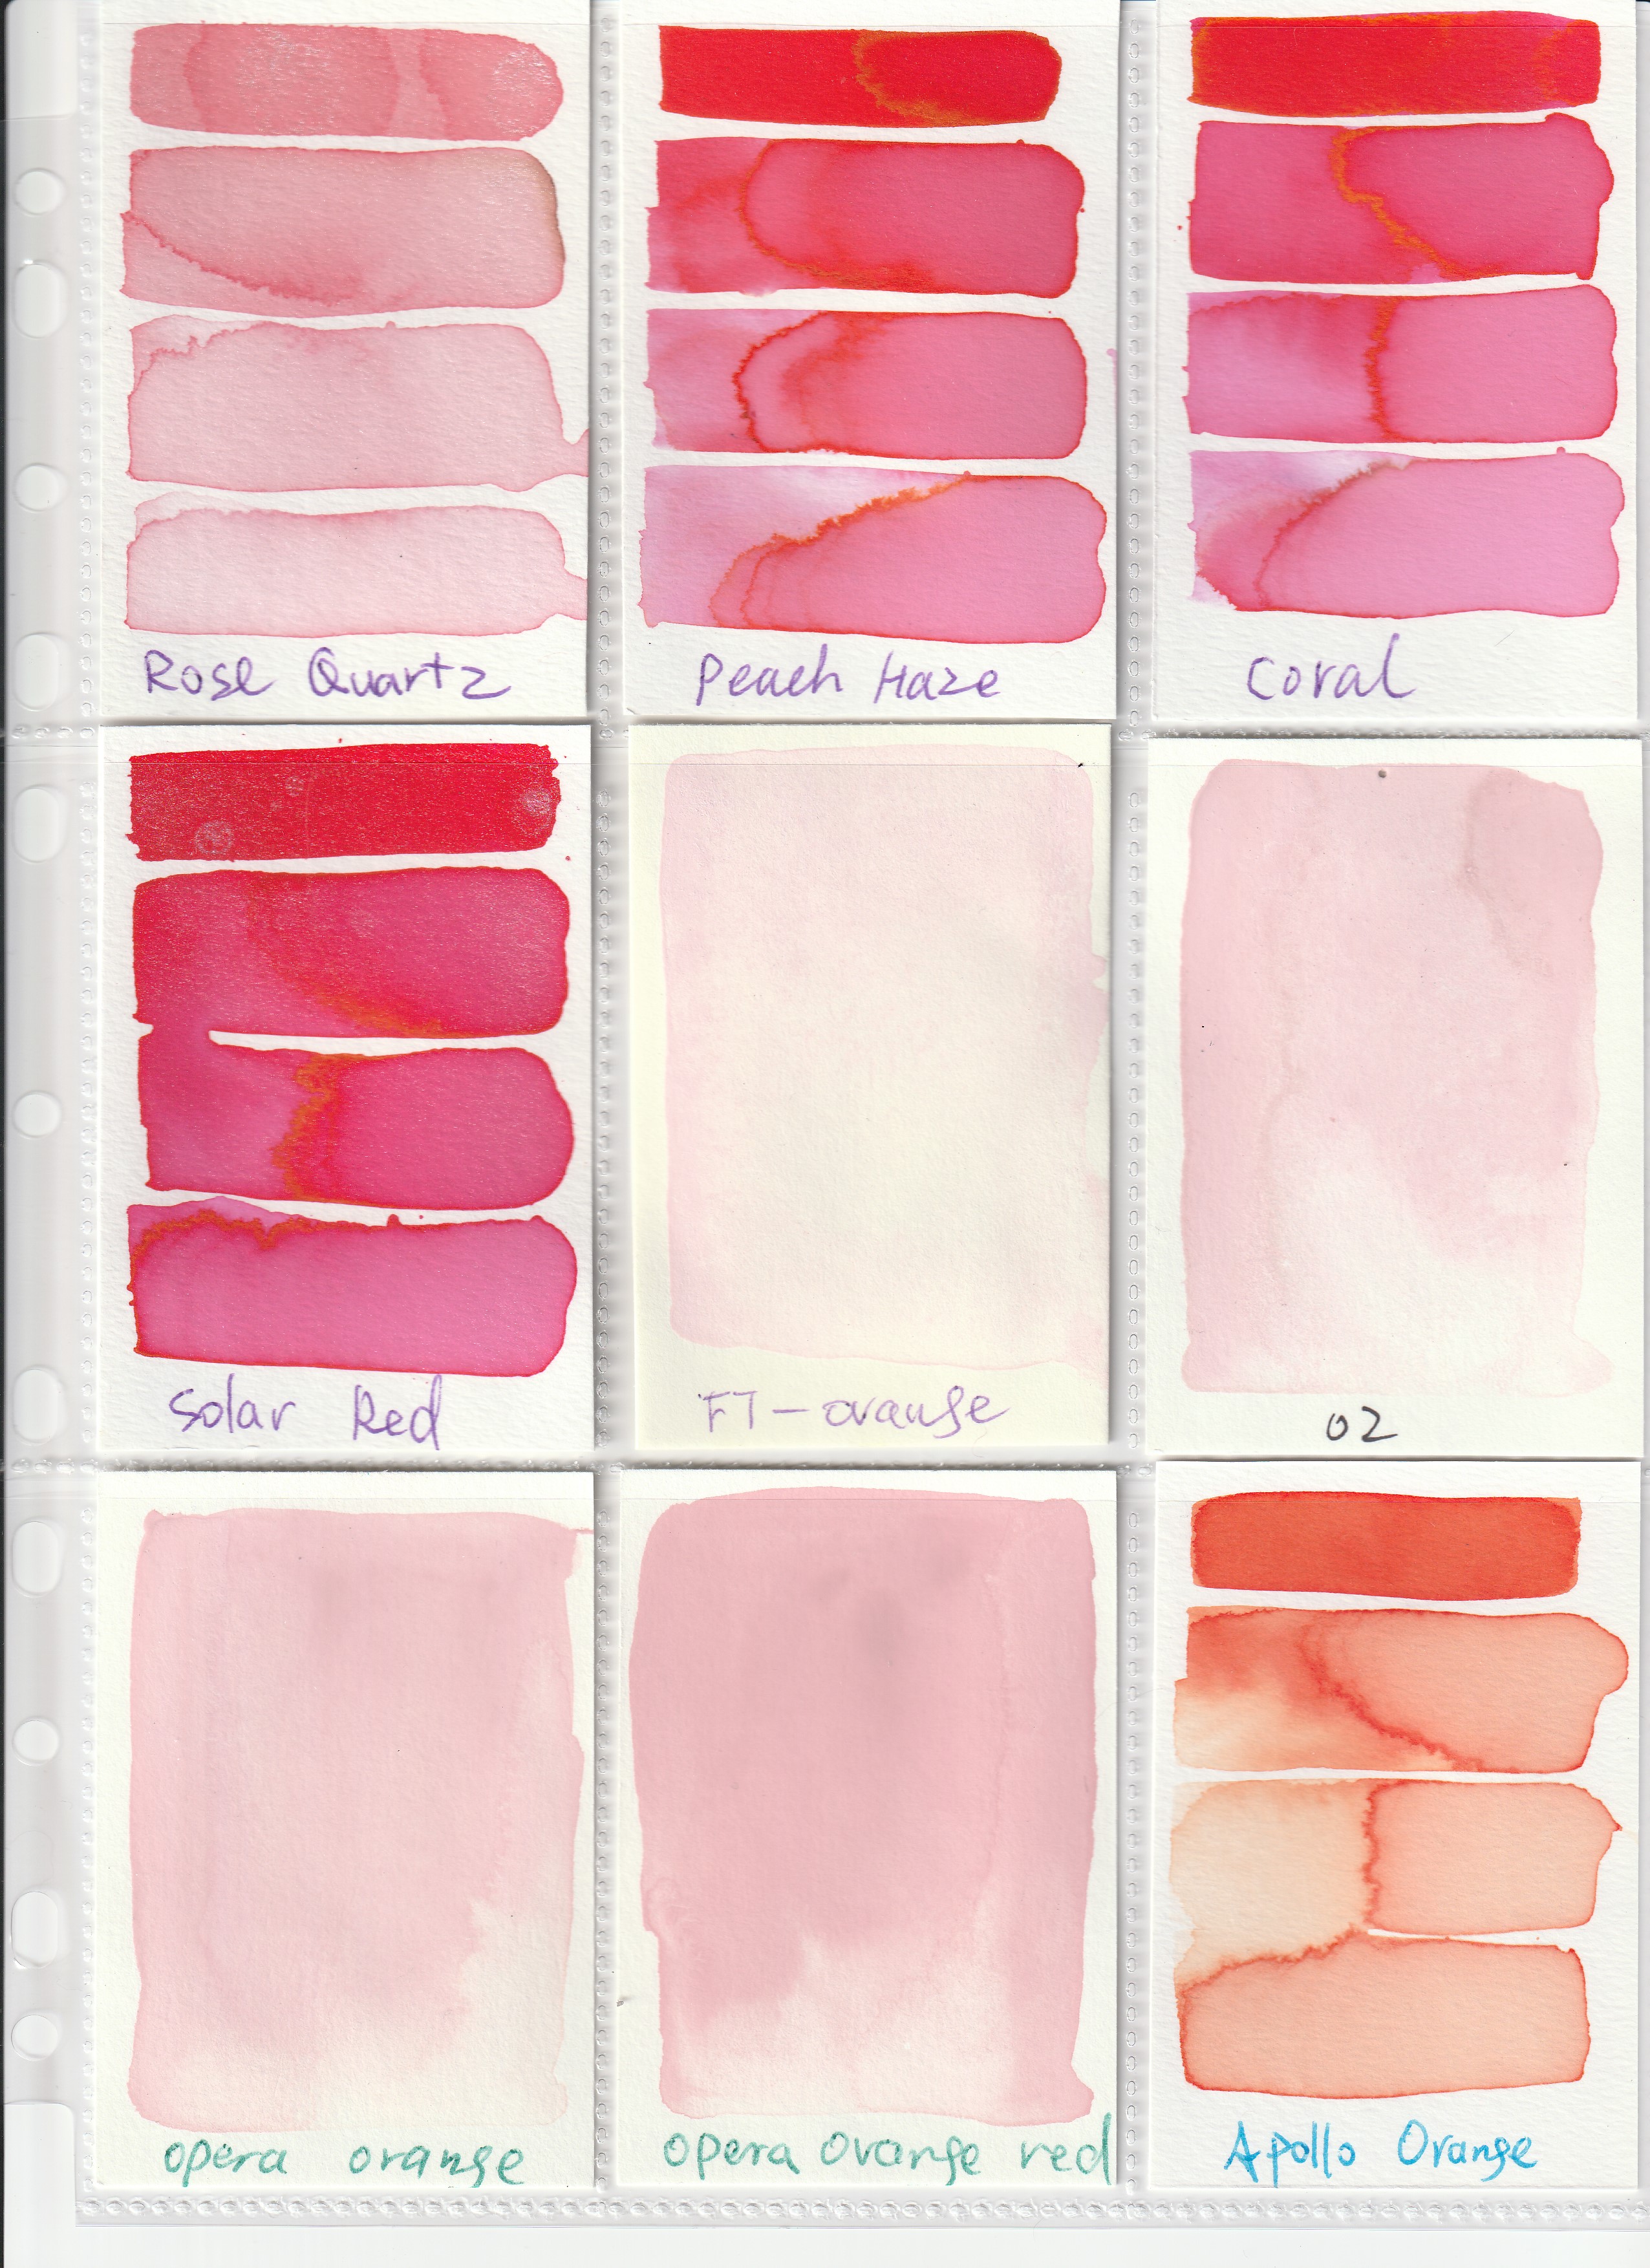 Rose Quartz
Peach Haze
Coral
Solar Red
F7-orange
02
opera orange
opera orange red
Apollo Orange